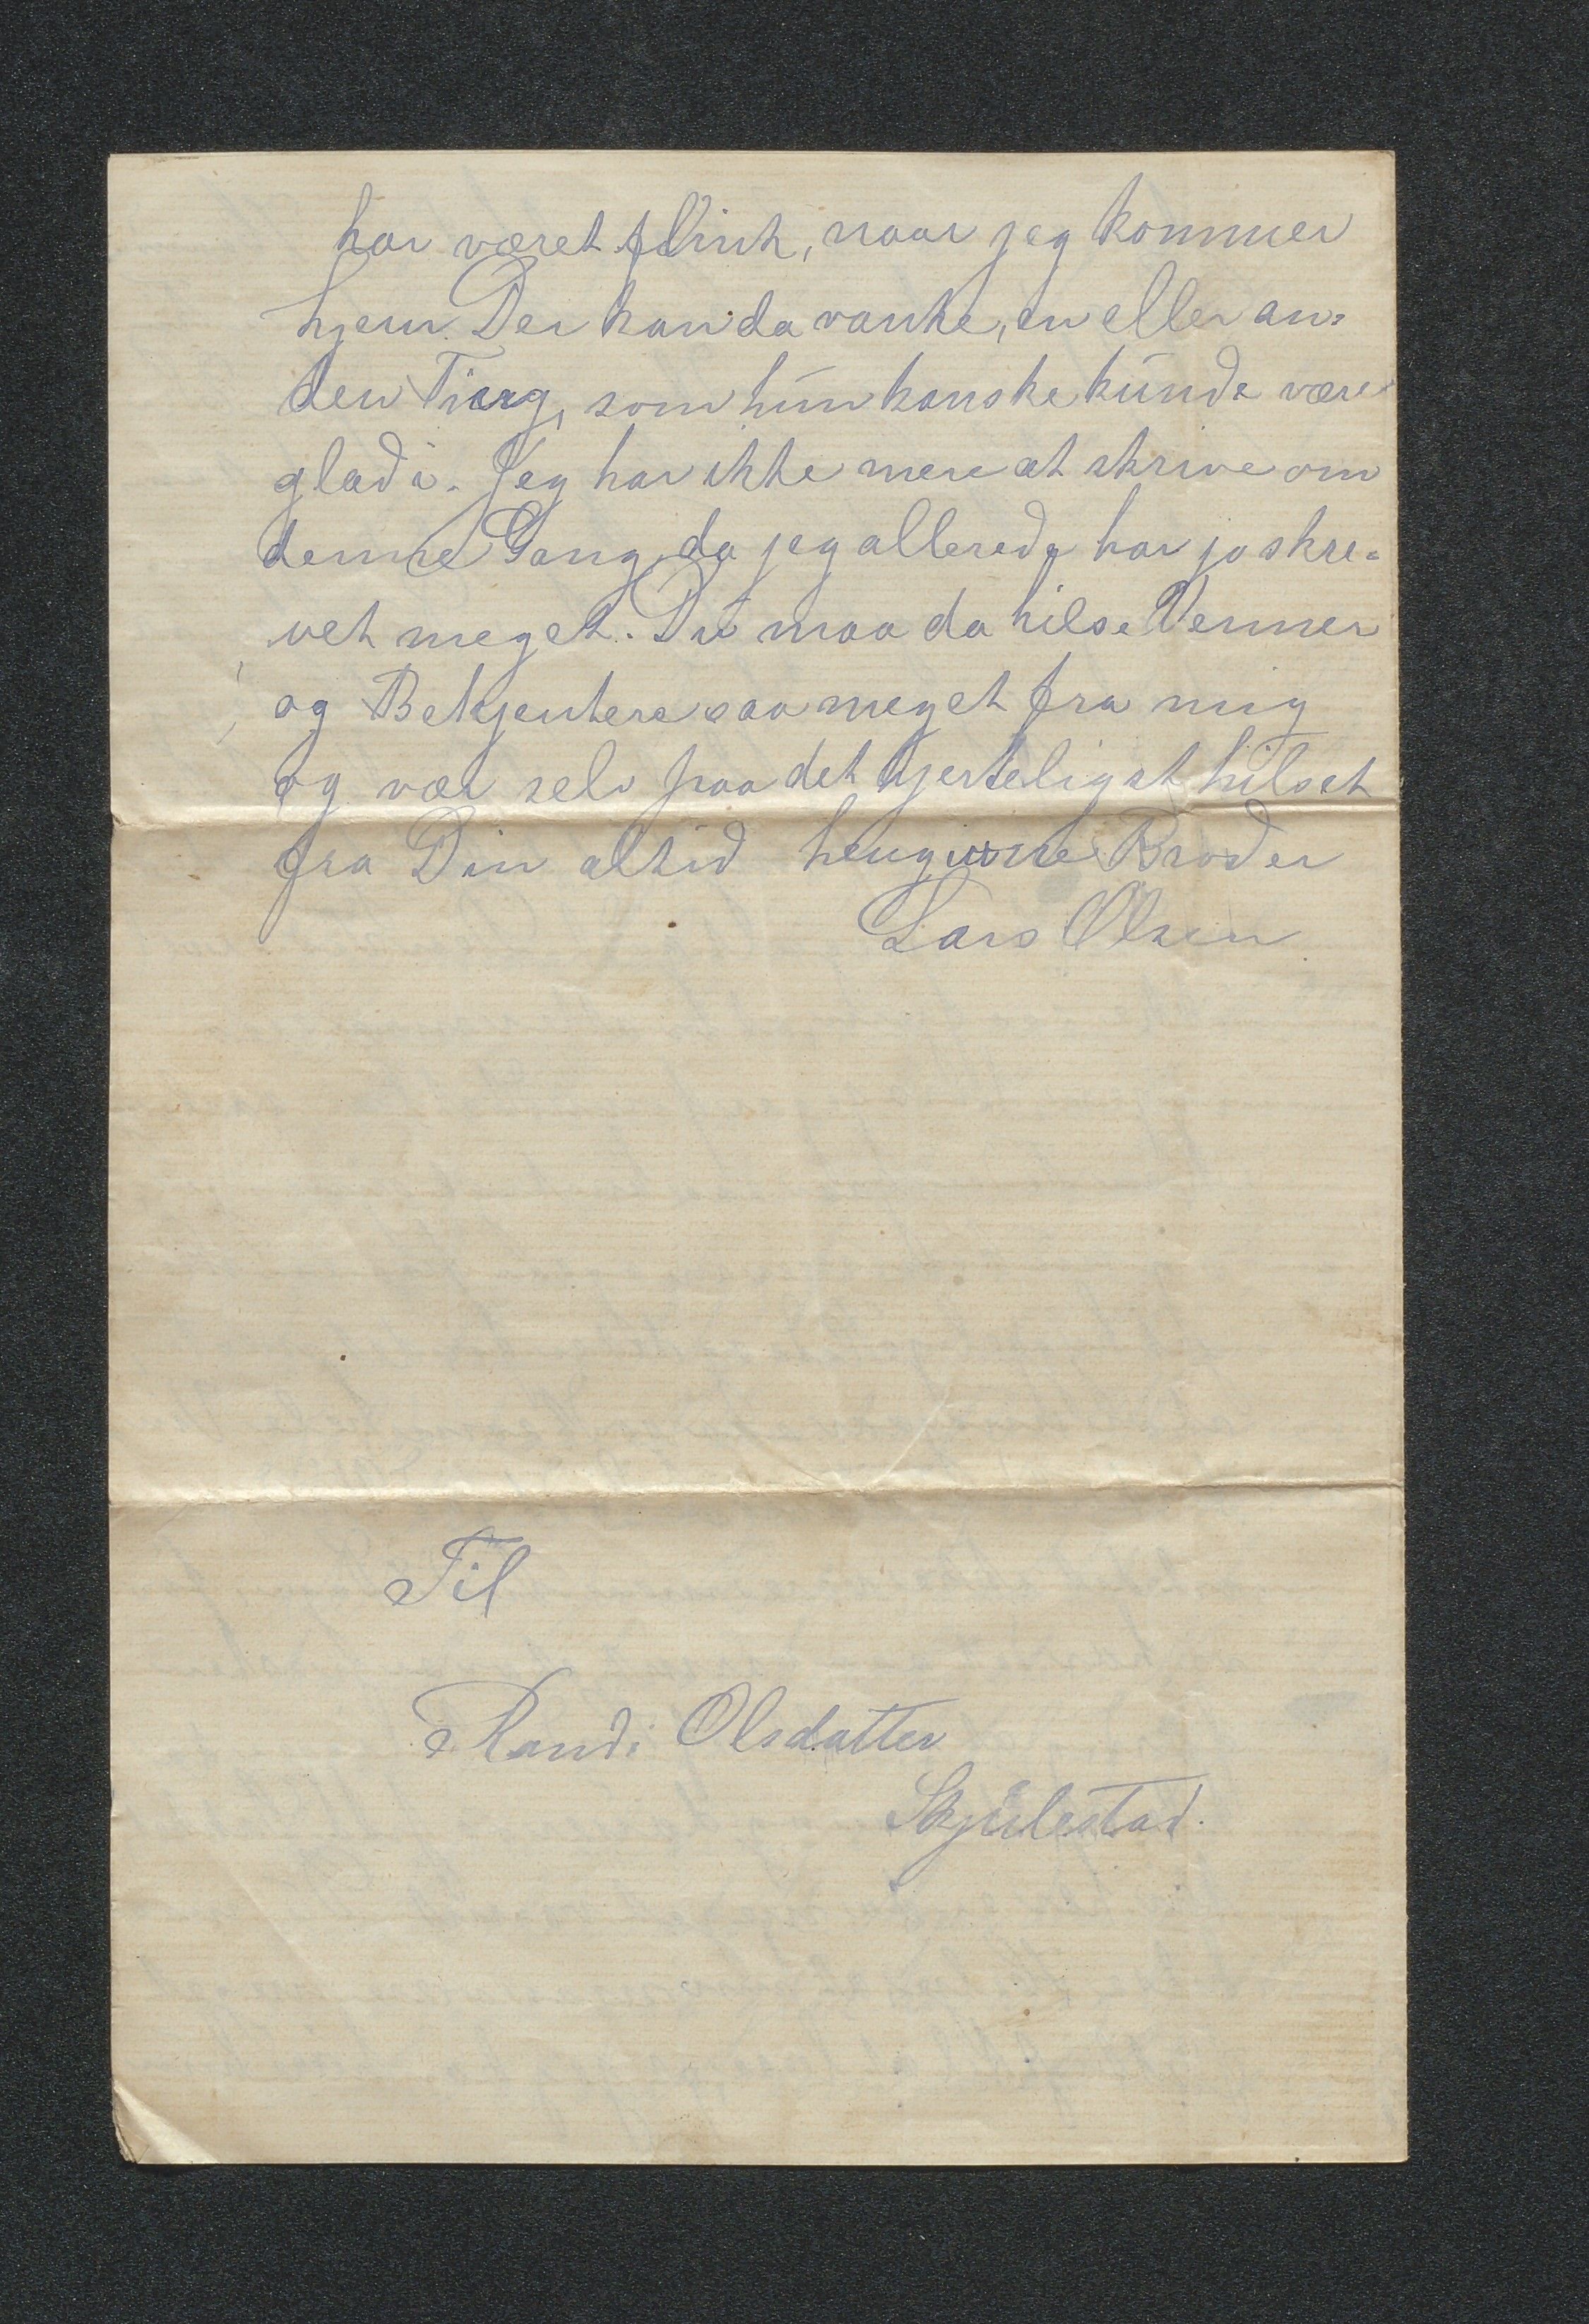 har været flink, naar jeg kommer
hjem. Der kan da vanke, en eller an=
den Ting, som hun kanske kunde være
glad i. Jeg har ikke mere at skrive om
denne Gang, da jeg allerede har jo skre=
vet meget. Du maa da hilse Venner
og Bekjentere saa meget fra mig
og vær selv paa det hjerteligst hilset
fra Din altid hengivne Broder
Lars Olsen
Til
Randi Olsdatter
Skjulestad.